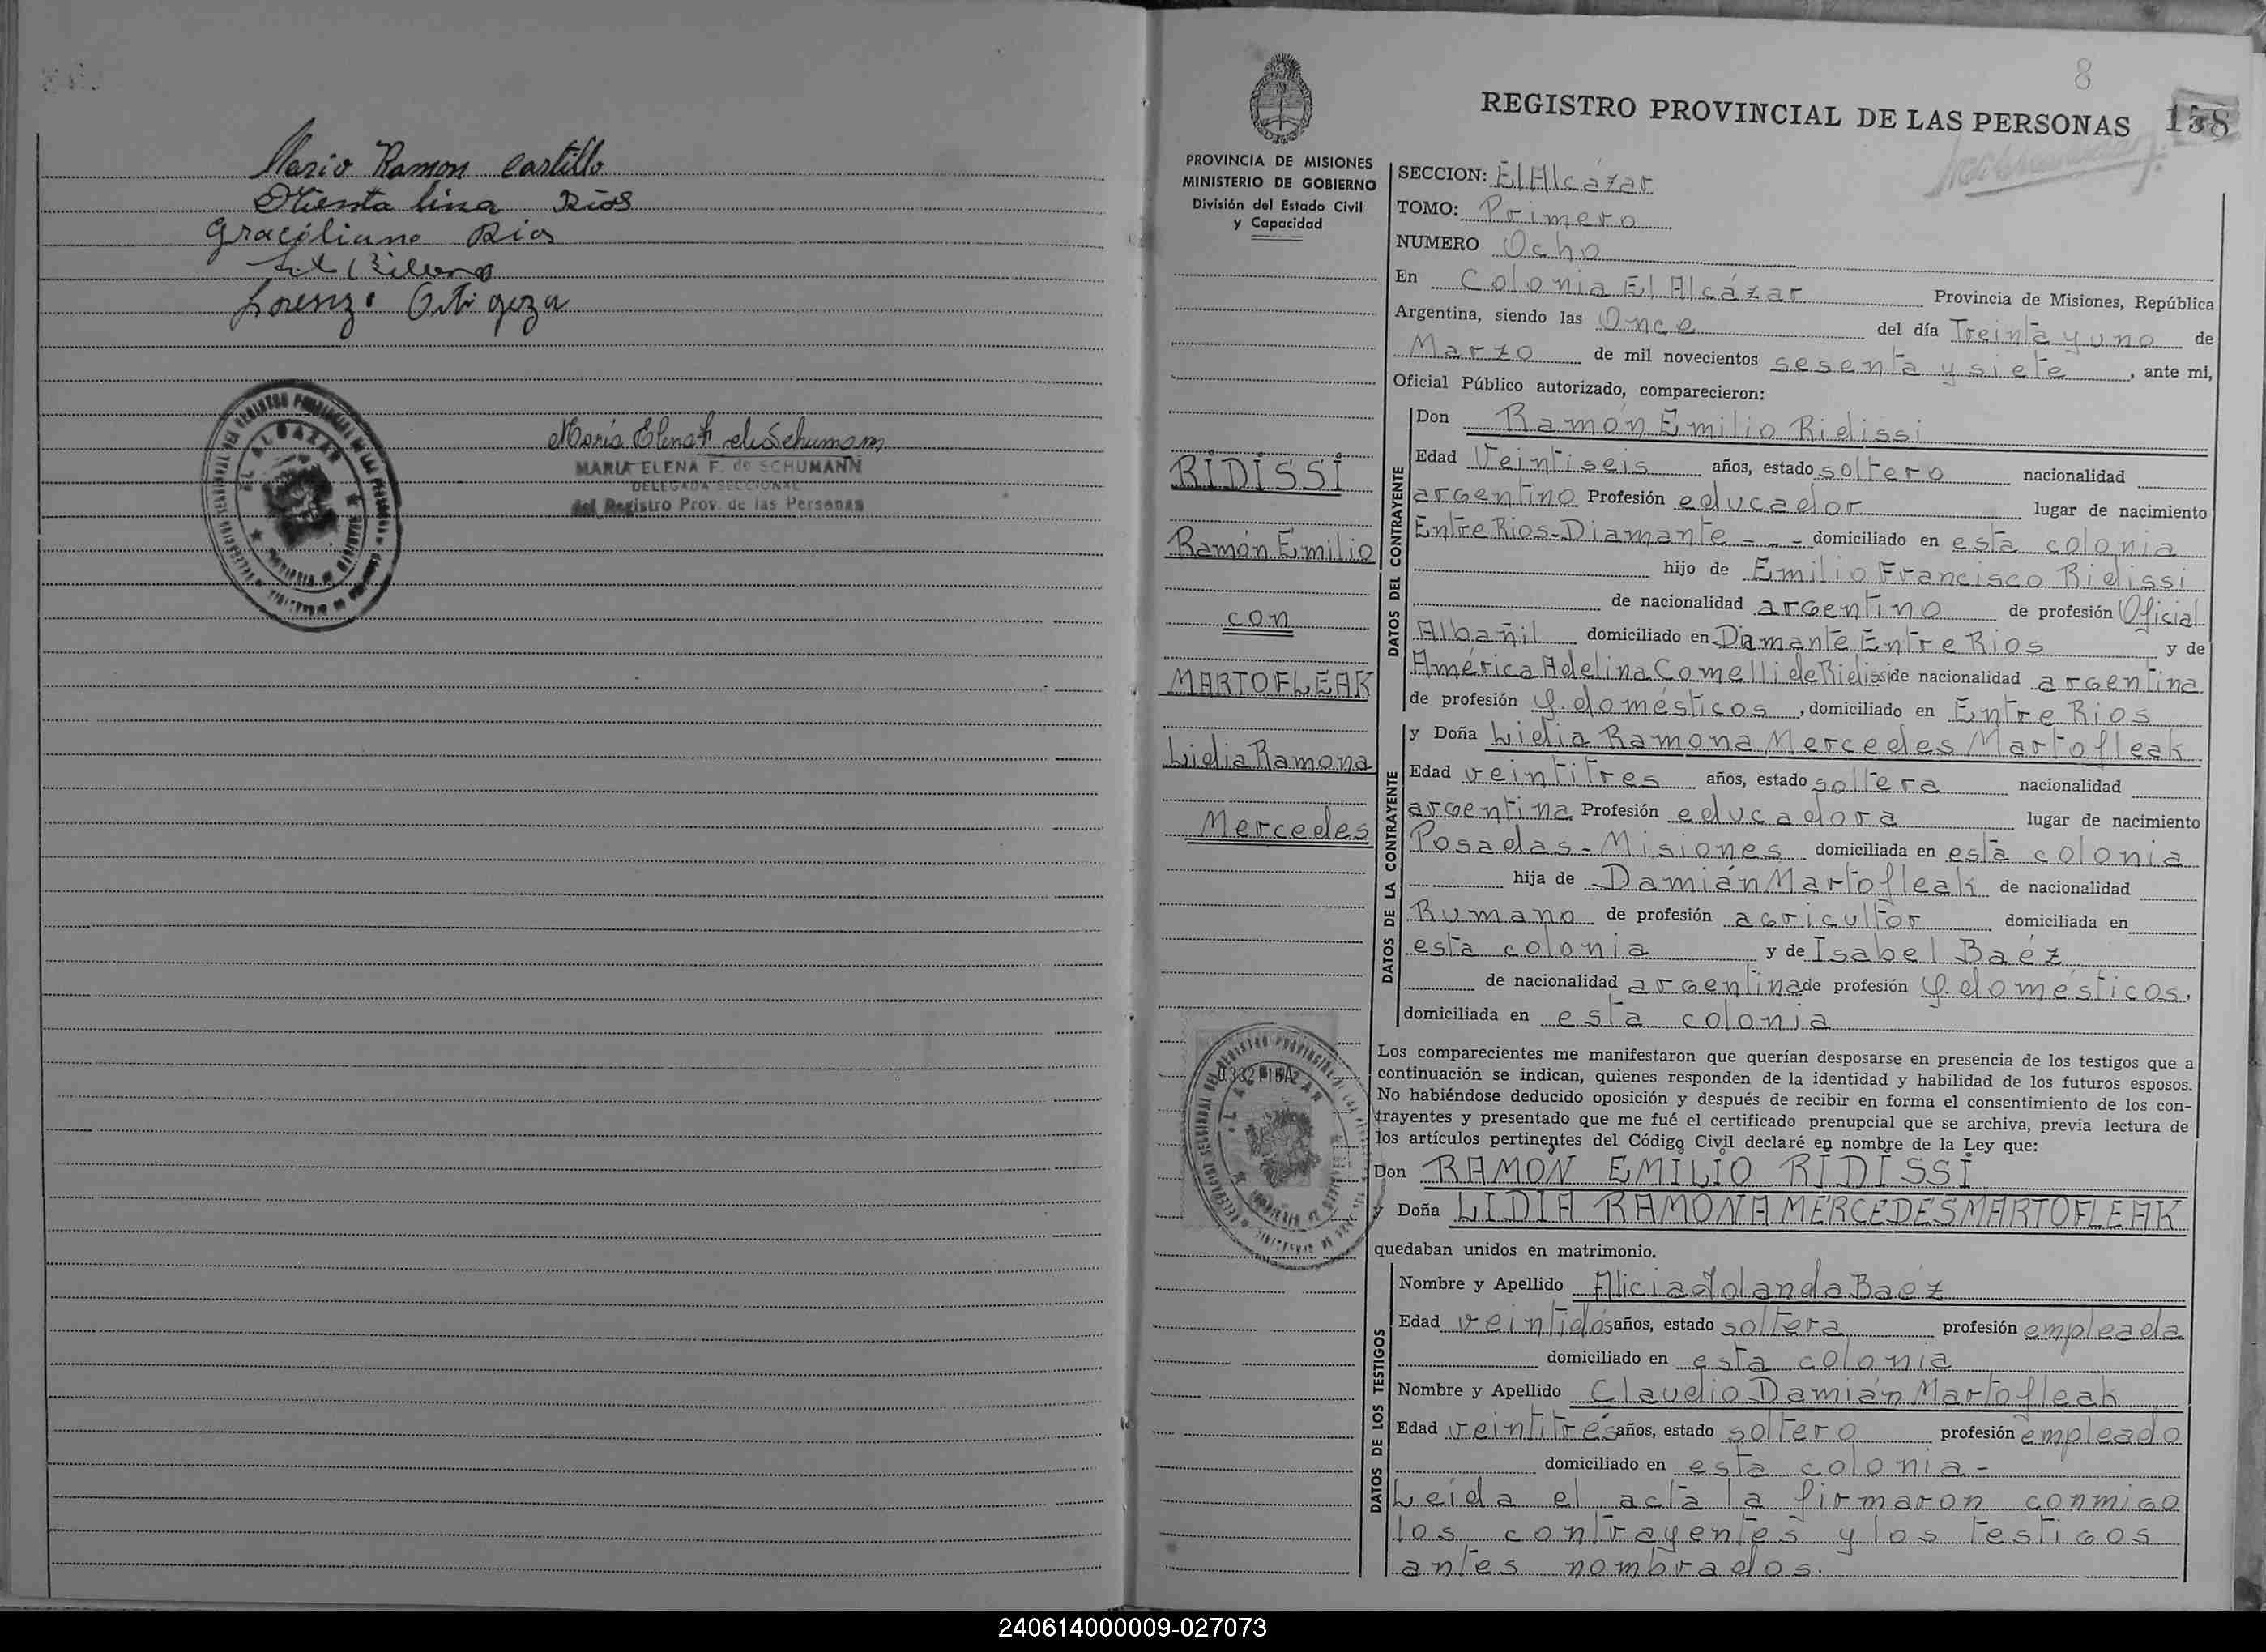 Mario Ramon Castillo
lina Rios
Graciliano Rios
Lorenzo
EL ALCAZAR
MARIA ELENA F. de SCHUMANN
DELEGADA SECCIONAL
del Registro Prov. de las Personas
8
REGISTRO PROVINCIAL DE LAS PERSONAS 158
PROVINCIA DE MISIONES
MINISTERIO DE GOBIERNO
División del Estado Civil
y Capacidad
RIDISSI
Ramón Emilio
con
MARTOFLEAK
Lidia Ramona
Mercedes
SECCION: El Alcázar
TOMO: Primero
NUMERO Ocho
En Colonia El Alcázar Provincia de Misiones, República
Argentina, siendo las Once del día Treinta y uno de
Marzo de mil novecientos sesenta y siete, ante mi,
Oficial Público autorizado, comparecieron:
DATOS DEL CONTRAYENTE
Don Ramón Emilio Ridissi
Edad Veintiseis años, estado soltero nacionalidad
argentino Profesión educador lugar de nacimiento
Entre Rios-Diamante - - - domiciliado en esta colonia
hijo de Emilio Francisco Ridissi
de nacionalidad argentino de profesión Oficial
Albañil domiciliado en Diamante Entre Rios y de
América Adelina Comelli de Ridissi de nacionalidad argentina
de profesión q. domésticos, domiciliado en Entre Rios
DATOS DE LA CONTRAYENTE
y Doña Lidia Ramona Mercedes Martofleak
Edad veintitres años, estado soltera nacionalidad
argentina Profesión educadora lugar de nacimiento
Posadas - Misiones domiciliada en esta colonia
hija de Damián Martofleak de nacionalidad
Rumano de profesión agricultor domiciliada en
esta colonia y de Isabel Baéz
de nacionalidad argentina de profesión q. domésticos,
domiciliada en esta colonia
Los comparecientes me manifestaron que querían desposarse en presencia de los testigos que a
continuación se indican, quienes responden de la identidad y habilidad de los futuros esposos.
No habiéndose deducido oposición y después de recibir en forma el consentimiento de los con-
trayentes y presentado que me fué el certificado prenupcial que se archiva, previa lectura de
los artículos pertinentes del Código Civil declaré en nombre de la Ley que:
Don RAMON EMILIO RIDISSI
y Doña LIDIA RAMONA MERCEDES MARTOFLEAK
quedaban unidos en matrimonio.
DATOS DE LOS TESTIGOS
Nombre y Apellido Alicia Yolanda Baéz
Edad veintidós años, estado soltera profesión empleada
domiciliado en esta colonia
Nombre y Apellido Claudio Damián Martofleak
Edad veintitrés años, estado soltero profesión empleado
domiciliado en esta colonia -
Leída el acta la firmaron conmigo
los contrayentes y los testigos
antes nombrados.
240614000009-027073